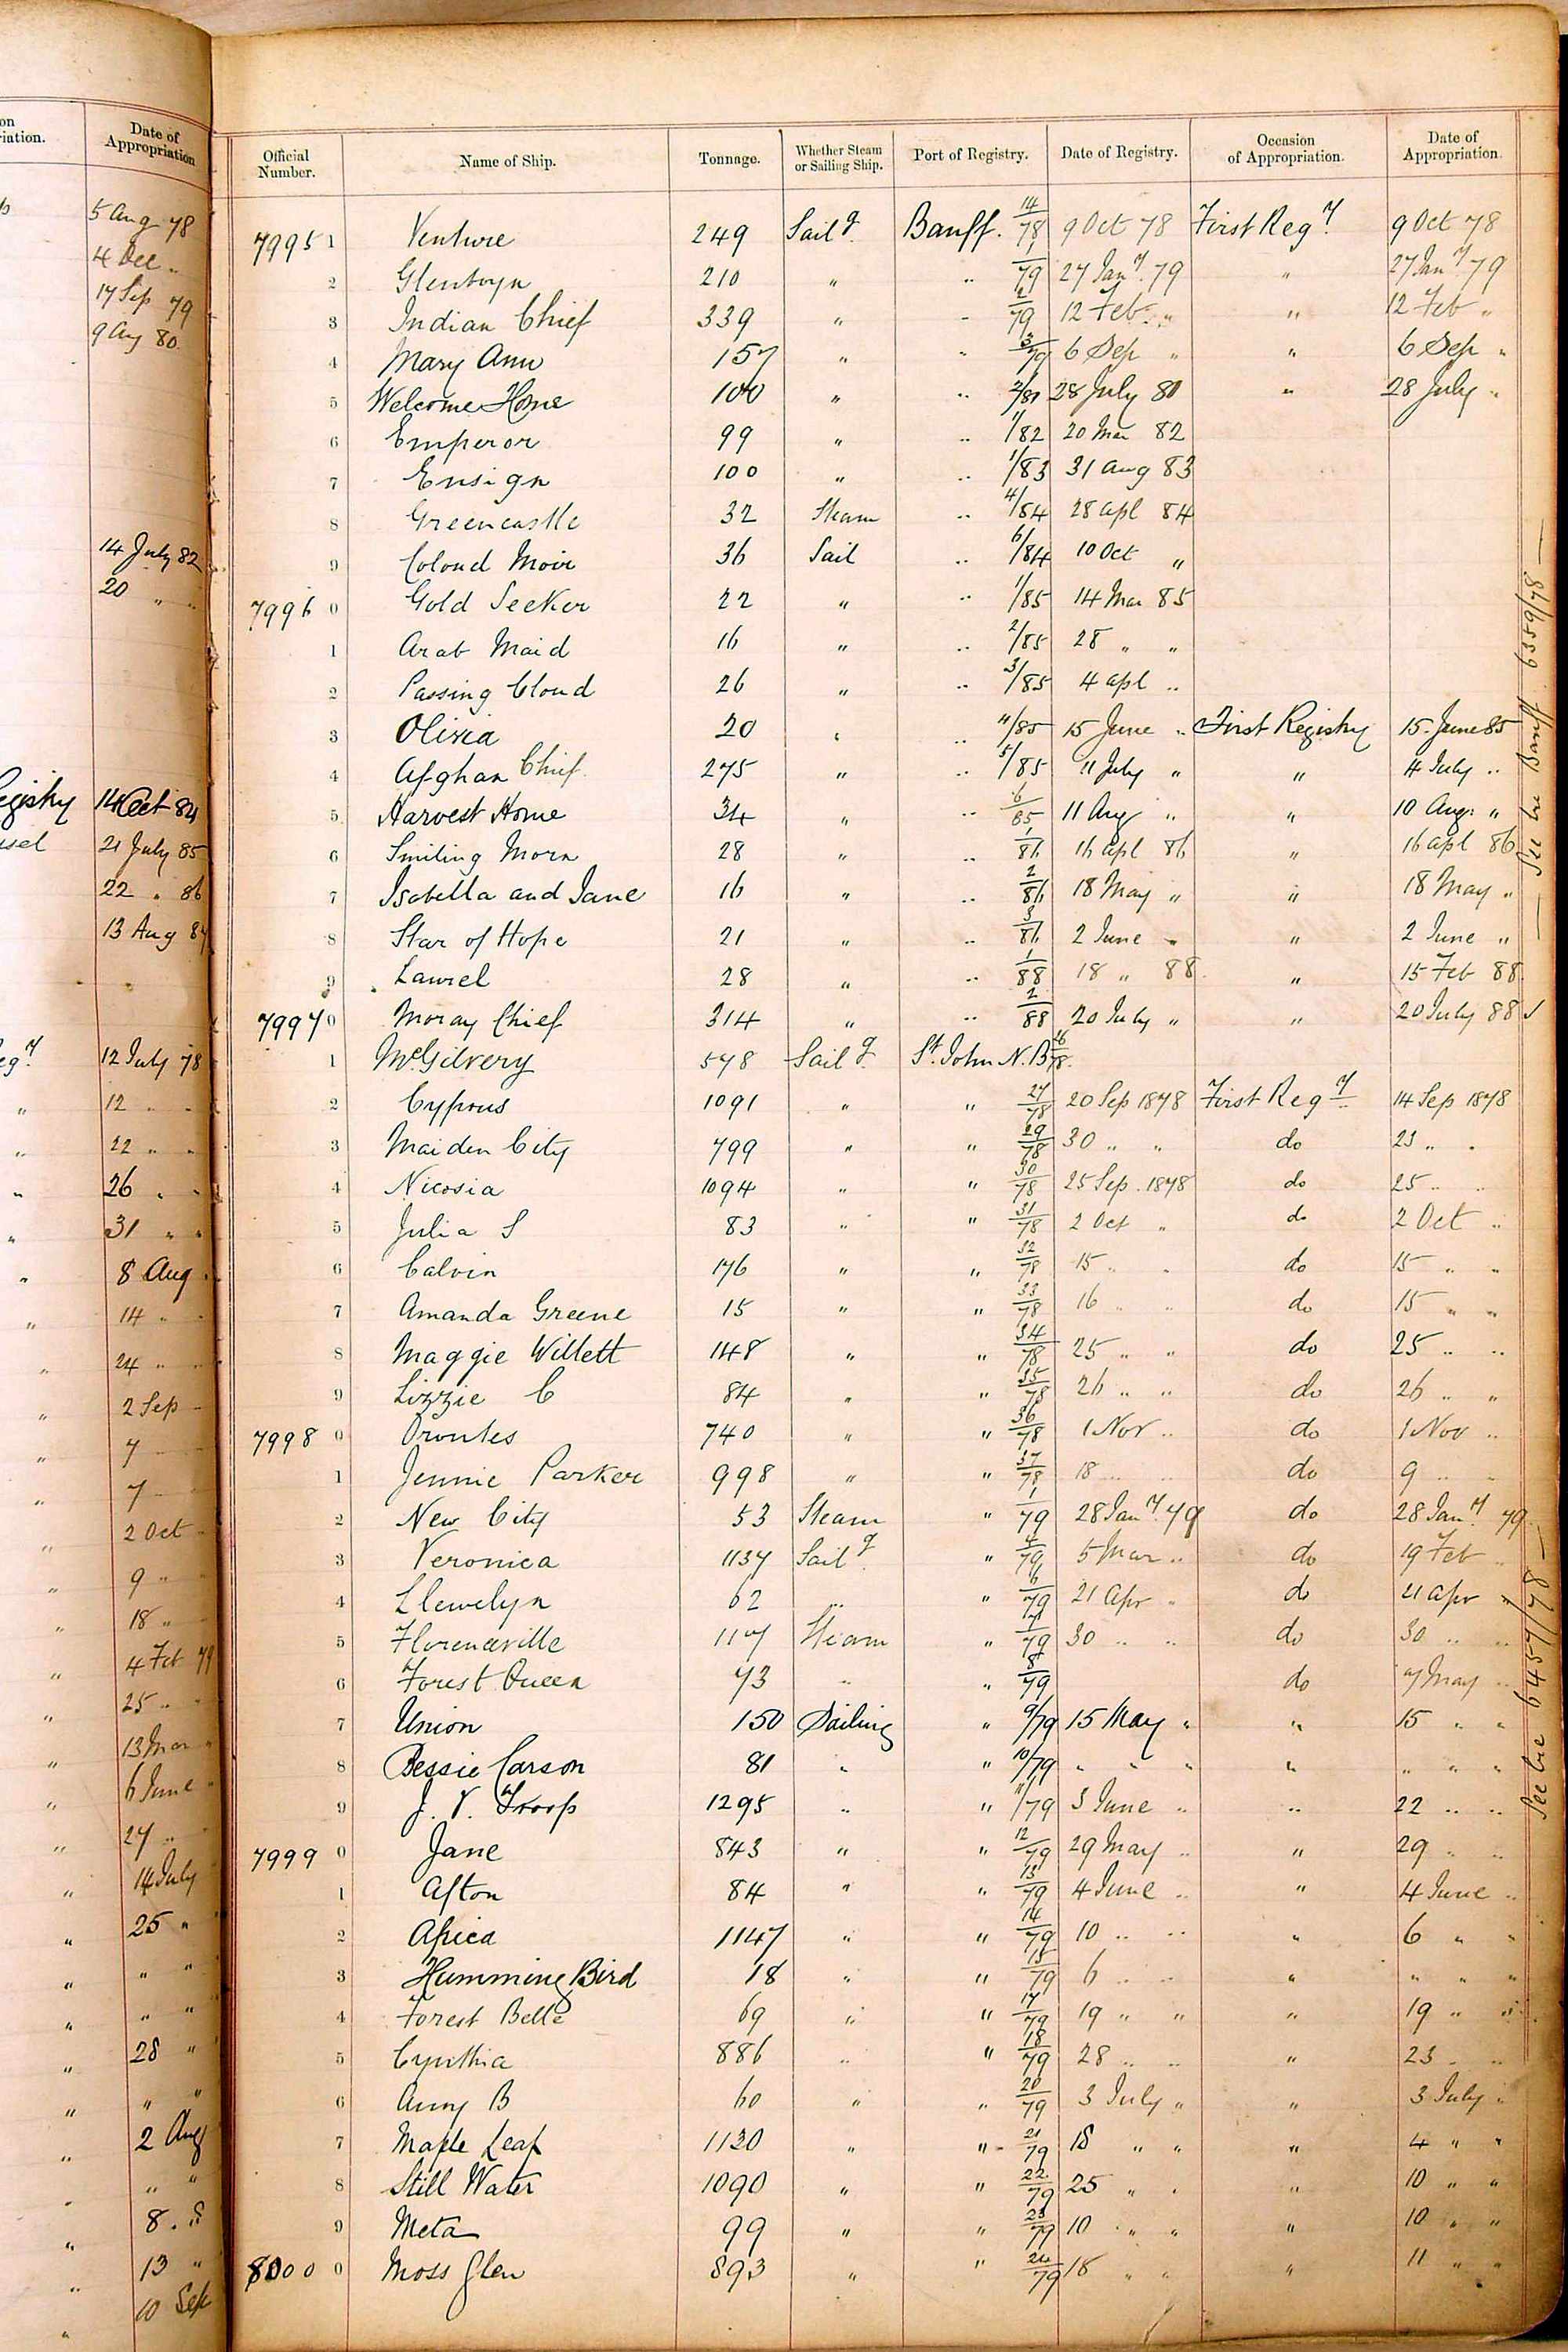 on
riation.
Date of
Appropriation
5 Aug 78
4 Dec "
17 Sep 79
9 Aug 80
14 July 82
20 " "
Registry 14 Oct 84
ssel 21 July 85
22 " 86
13 Aug 87
egy. 12 July 78
" 12 " "
" 22 " "
" 26 " "
" 31 " "
" 8 Aug "
" 14 " "
" 24 " "
" 2 Sep "
" 7 " "
" 7 " "
" 2 Oct "
" 9 " "
" 18 " "
" 4 Feb 79
" 25 " "
" 13 Mar "
" 6 June "
" 27 " "
" 14 July
" 25 "
" " "
" " "
" 28 "
" " "
" 2 Aug
" " "
" 8
" 13 "
" 10 Sep
Official Number. Name of Ship. Tonnage. Whether Steam or Sailing Ship. Port of Registry. Date of Registry. Occasion of Appropriation. Date of Appropriation.
7995 1 Venture 249 Sailg. Banff. 14/78 9 Oct 78 First Regy. 9 Oct 78
2 Glentwyn 210 " " 1/79 27 Jany. 79 " 27 Jany 79
3 Indian Chief 339 " " 2/79 12 Feb " " 12 Feb "
4 Mary Ann 157 " " 3/79 6 Sep " " 6 Sep "
5 Welcome Home 100 " " 2/80 28 July 80 " 28 July "
6 Emperor 99 " " 1/82 20 Mar 82
7 Ensign 100 " " 1/83 31 Aug 83
8 Greencastle 32 Steam " 4/84 28 apl 84
9 Colonel Moir 36 Sail " 6/84 10 Oct "
7996 0 Gold Seeker 22 " " 1/85 14 Mar 85
1 Arab Maid 16 " " 2/85 28 " "
2 Passing Cloud 26 " " 3/85 4 apl "
3 Olivia 20 " " 4/85 15 June " First Registry 15 June 85
4 Afghan Chief 275 " " 5/85 11 July " " 4 July "
5 Harvest Home 34 " " 6/85 11 Aug " " 10 Aug: "
6 Smiling Morn 28 " " 1/86 16 apl 86 " 16 apl 86
7 Isabella and Jane 16 " " 2/86 18 May " " 18 May "
8 Star of Hope 21 " " 3/86 2 June " " 2 June "
9 Laurel 28 " " 1/88 18 " 88 " 15 Feb 88
7997 0 Moray Chief 314 " " 2/88 20 July " " 20 July 88
1 McGilvery 578 Sailg. St. John N.B. 16/78
2 Cyprus 1091 " " 27/78 20 Sep 1878 First Regy. 14 Sep 1878
3 Maiden City 799 " " 29/78 30 " " do 23 " "
4 Nicosia 1094 " " 30/78 25 Sep. 1878 do 25 " "
5 Julia S 83 " " 31/78 2 Oct " do 2 Oct "
6 Calvin 176 " " 32/78 15 " " do 15 " "
7 Amanda Greene 15 " " 33/78 16 " " do 15 " "
8 Maggie Willett 148 " " 34/78 25 " " do 25 " "
9 Lizzie C 84 " " 35/78 26 " " do 26 " "
7998 0 Orontes 740 " " 36/78 1 Nov " do 1 Nov "
1 Jennie Parker 998 " " 37/78 18 " " do 9 " "
2 New City 53 Steam " 1/79 28 Jany. 79 do 28 Jany. 79
3 Veronica 1137 Sailg. " 4/79 5 Mar " do 19 Feb "
4 Llewelyn 62 " " 6/79 21 Apr " do 21 apr "
5 Florenceville 117 Steam " 7/79 30 " " do 30 " "
6 Forest Queen 73 " " 8/79 do 7 May "
7 Union 150 Sailing " 9/79 15 May " " 15 " "
8 Bessie Carson 81 " " 10/79 " " " " " " "
9 J. V. Troop 1295 " " 11/79 3 June " " 22 " "
7999 0 Jane 843 " " 12/79 29 May " " 29 " "
1 Afton 84 " " 13/79 4 June " " 4 June "
2 Africa 1147 " " 14/79 10 " " " 6 " "
3 Humming Bird 18 " " 15/79 6 " " " " " "
4 Forest Belle 69 " " 17/79 19 " " " 19 " "
5 Cynthia 886 " " 18/79 28 " " " 23 " "
6 Anny B 60 " " 20/79 3 July " " 3 July "
7 Maple Leaf 1120 " " 21/79 18 " " " 4 " "
8 Still Water 1090 " " 22/79 25 " " " 10 " "
9 Meta 99 " " 23/79 10 " " " 10 " "
8000 0 Moss Glen 893 " " 24/79 18 " " " 11 " "
See tre Banff 6359/78
See tre 6457/78